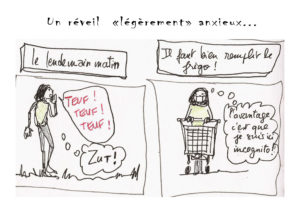 Un réveil «légèrement» anxieux...
le lendemain matin
Il faut bien remplir le
frigo !
TEUF !
TEUF !
TEUF !
ZUT !
L'avantage
c'est que
je suis ici
incognito !